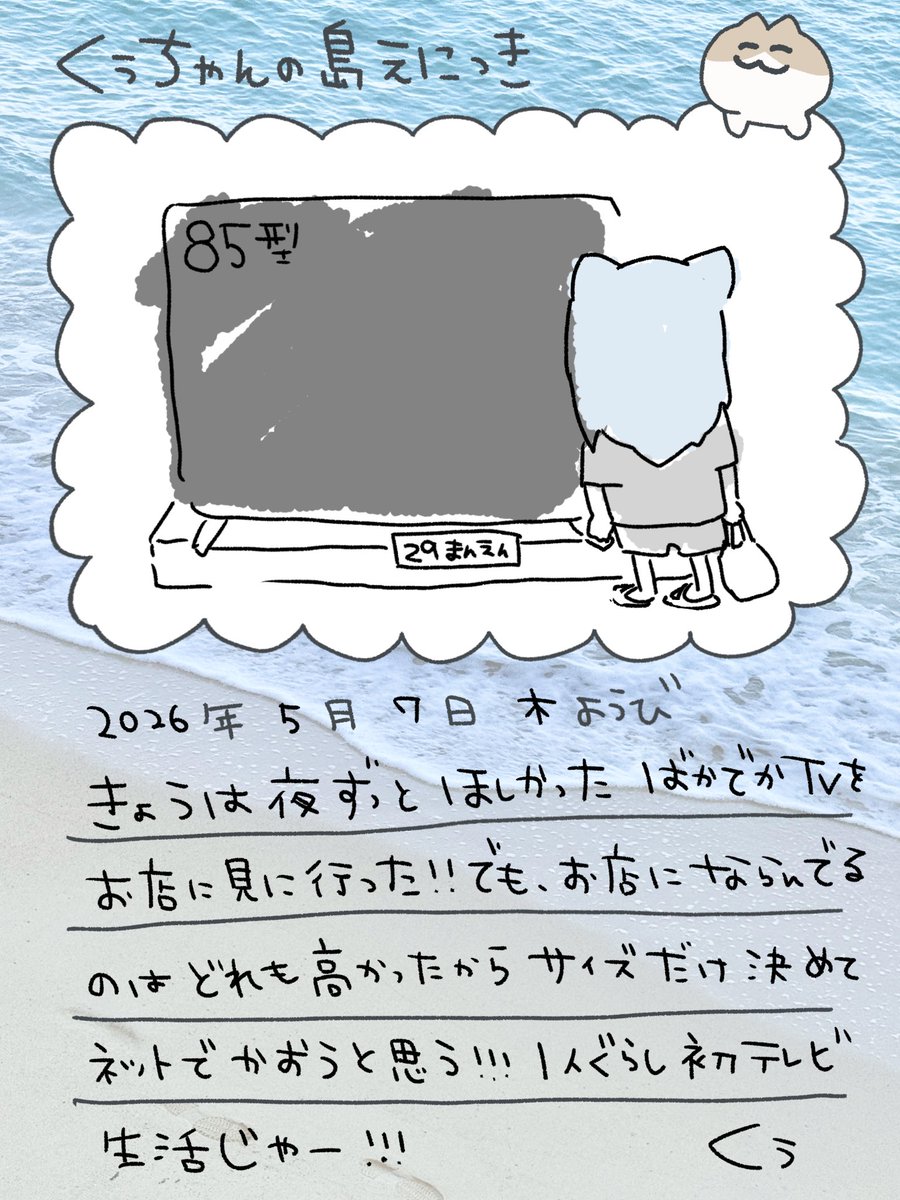 くぅちゃんの島えにっき
85型
29まんえん
2026年 5月 7日 木ようび
きょうは夜ずっとほしかったばかでかTVを
お店に見に行った!!でも、お店にならんでる
のはどれも高かったからサイズだけ決めて
ネットでかおうと思う!!!1人ぐらし初テレビ
生活じゃー!!! くぅ